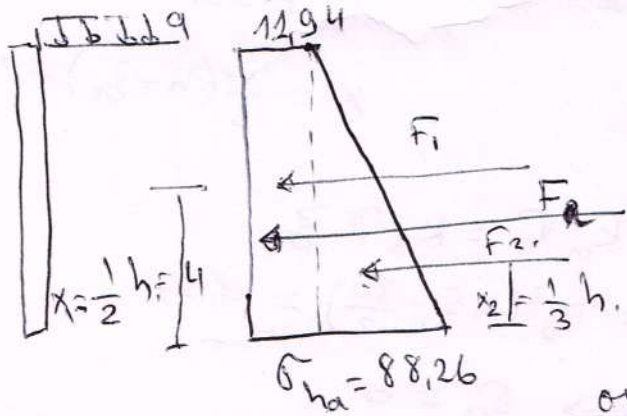 q 11,94
F₁
Fa
F₂.
x = 1/2 h = 4
x₂ = 1/3 h.
σha = 88,26